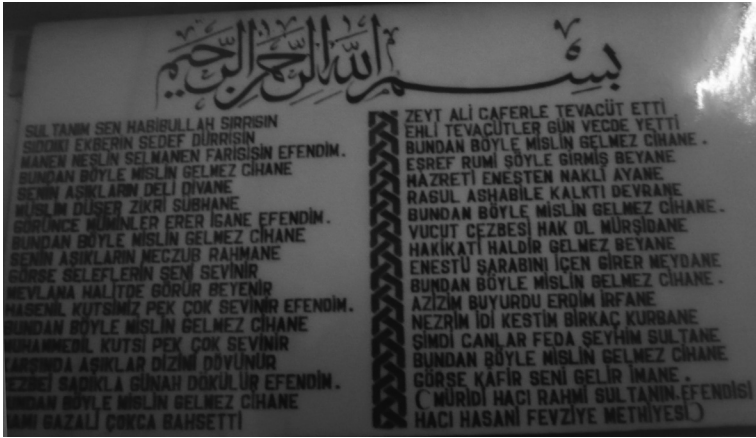 بسم الله الرحمن الرحيم
SULTANIM SEN HABİBULLAH SIRRISIN
SIDDIKI EKBERİN SEDEF DÜRRİSİN
MANEN NESLİN SELMANEN FARİSİŞİN EFENDİM.
BUNDAN BÖYLE MİSLİN GELMEZ CİHANE
SENİN AŞIKLARIN DELİ DİVANE
MÜSLİM DÜŞER ZİKRİ SÜBHANE
GÖRÜNCE MÜMİNLER ERER İGANE EFENDİM.
BUNDAN BÖYLE MİSLİN GELMEZ CİHANE
SENİN AŞIKLARIN MECZUB RAHMANE
GÖRSE SELEFLERİN ŞENİ SEVİNİR
MEVLANA HALİTDE GÖRÜR BEYENİR
HASENİL KUTSİMİZ PEK ÇOK SEVİNİR EFENDİM.
BUNDAN BÖYLE MİSLİN GELMEZ CİHANE
MUHAMMEDİL KUTSİ PEK ÇOK SEVİNİR
KARŞINDA AŞIKLAR DİZİNİ DÖVÜNÜR
CEZBEİ SADIKLA GÜNAH DÖKÜLÜR EFENDİM.
BUNDAN BÖYLE MİSLİN GELMEZ CİHANE
GAZALİ ÇOKCA BAHSETTİ
ZEYT ALİ CAFERLE TEVACÜT ETTİ
EHLİ TEVACÜTLER GÜN VECDE YETTİ
BUNDAN BÖYLE MİSLİN GELMEZ CİHANE.
EŞREF RUMİ ŞÖYLE GİRMİŞ BEYANE
HAZRETİ ENEŞTEN NAKLİ AYANE
RASUL ASHABİLE KALKTI DEVRANE
BUNDAN BÖYLE MİSLİN GELMEZ CİHANE.
VUCUT CEZBESİ HAK OL MÜRŞİDANE
HAKİKATİ HALDIR GELMEZ BEYANE
ENESTÜ ŞARABINI İÇEN GİRER MEYDANE
BUNDAN BÖYLE MİSLİN GELMEZ CİHANE.
AZİZİM BUYURDU ERDİM İRFANE
NEZRİM İDİ KESTİM BİRKAÇ KURBANE
ŞİMDİ CANLAR FEDA ŞEYHİM SULTANE
BUNDAN BÖYLE MİSLİN GELMEZ CİHANE
GÖRSE KAFİR SENİ GELİR İMANE.
(MÜRİDİ HACI RAHMİ SULTANIN EFENDİSİ
HACI HASANİ FEVZİYE METHİYESİ)